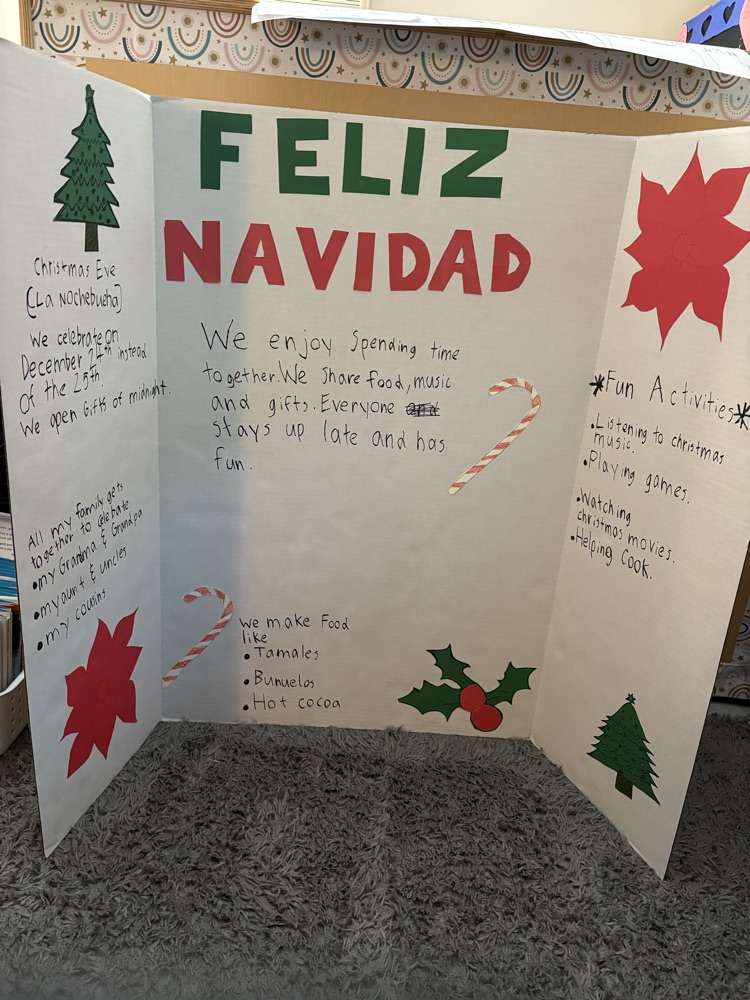 FELIZ
NAVIDAD
Christmas Eve
(La Nochebueña)
We celebrate on
December 24th instead
of the 25th.
We open Gifts of midnight.
All my family gets
together to celebrate
•my Grandma & Grandpa
•my aunt & uncles
•my cousins
We enjoy spending time
together. We share food, music
and gifts. Everyone
stays up late and has
fun.
we make Food
like
•Tamales
•Bunuelos
•Hot cocoa
*Fun Activities*
•Listening to christmas
music.
•Playing games.
•Watching
christmas movies.
•Helping cook.